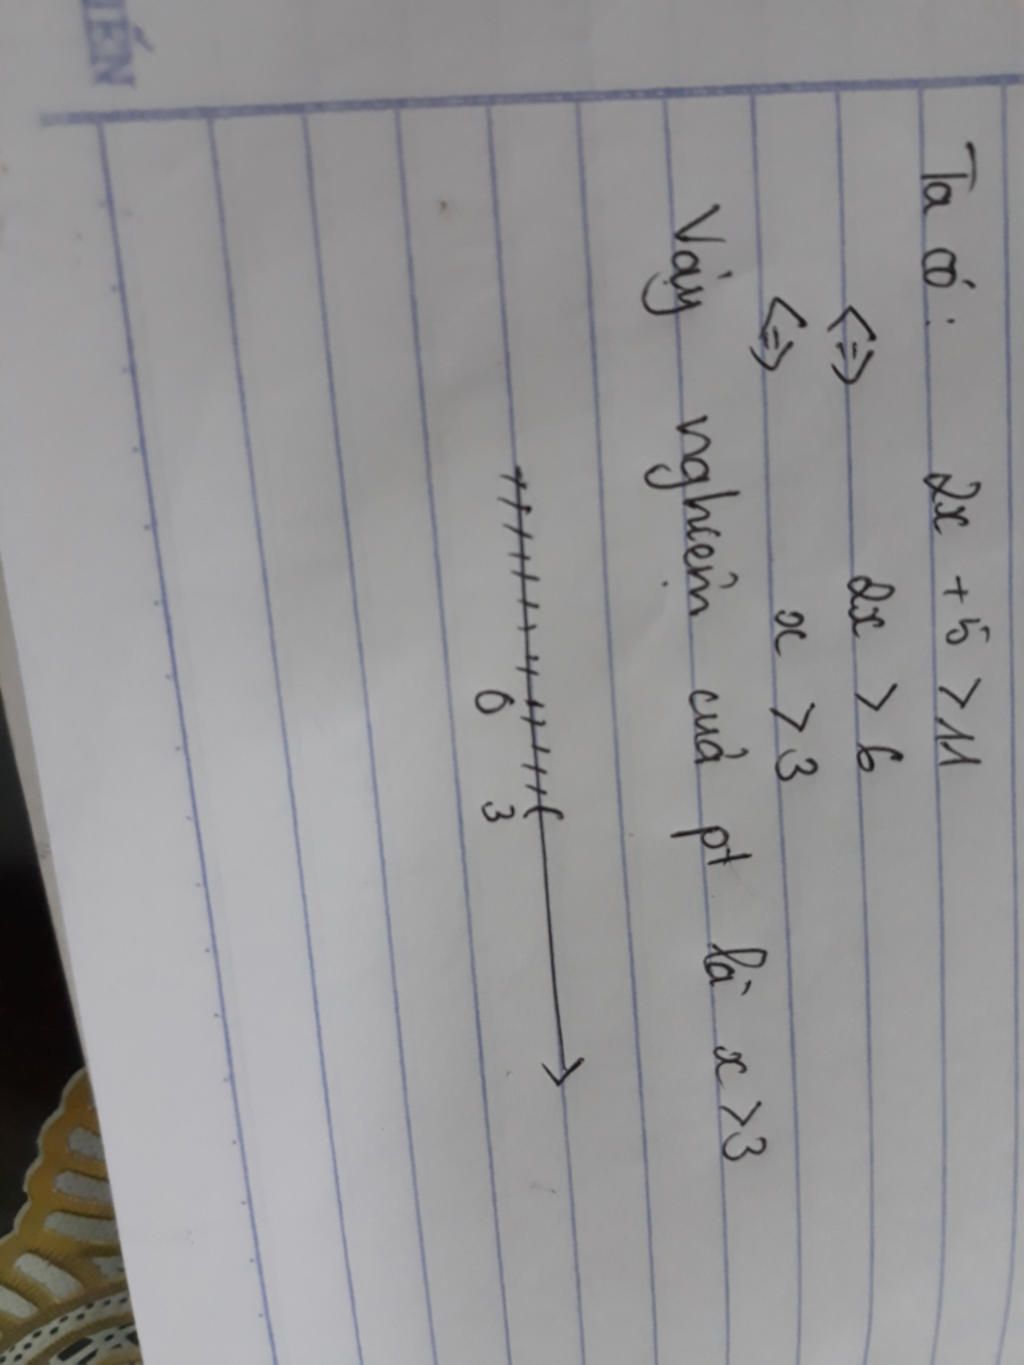 Ta có: 2x + 5 > 11
<=> 2x > 6
<=> x > 3
Vậy nghiệm của pt là x > 3
0 3